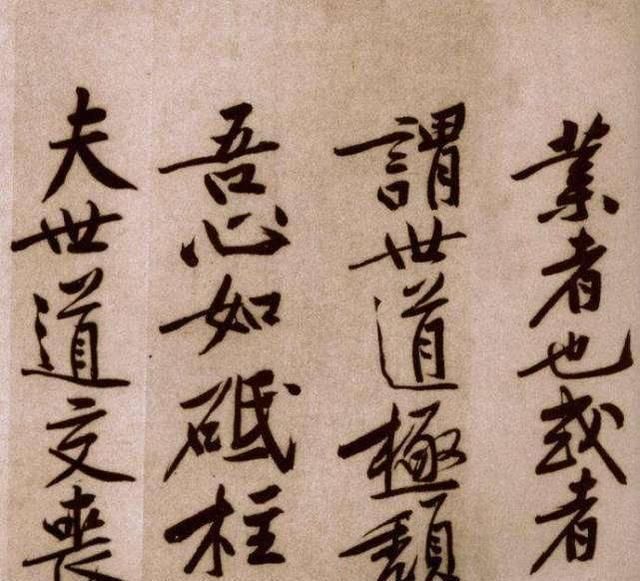 業者也或者
謂世道極頹
吾心如砥柱
夫世道交喪